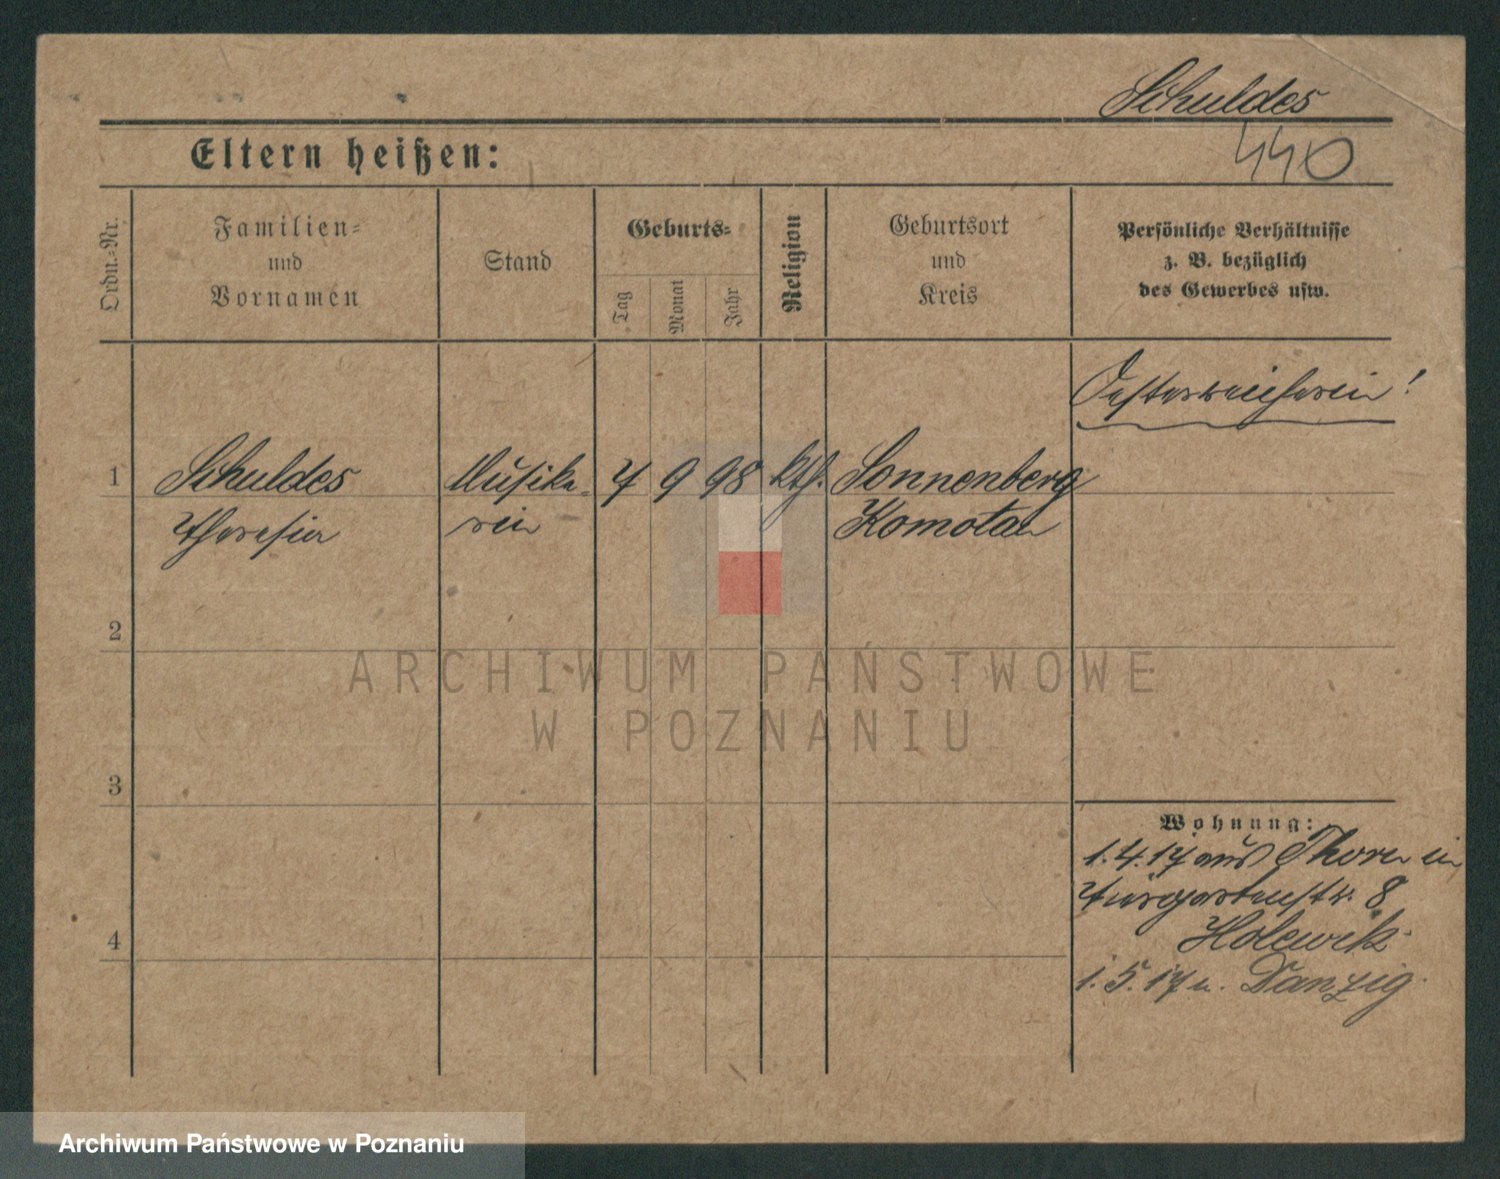 Schuldes
440
Eltern heißen:
Ordn.-Nr.
Familien-
und
Vornamen
Stand
Geburts-
Tag
Monat
Jahr
Religion
Geburtsort
und
Kreis
Persönliche Verhältnisse
z. B. bezüglich
des Gewerbes usw.
Oesterreicherin!
1 Schuldes Musike- 7 9 98 kth. Sonnenberg
Theresia rin Komotau
2
ARCHIWUM PAŃSTWOWE
W POZNANIU
3
Wohnung:
1.4.17 aus Thorn in
8
4
1.5.17 n. Danzig.
Archiwum Państwowe w Poznaniu